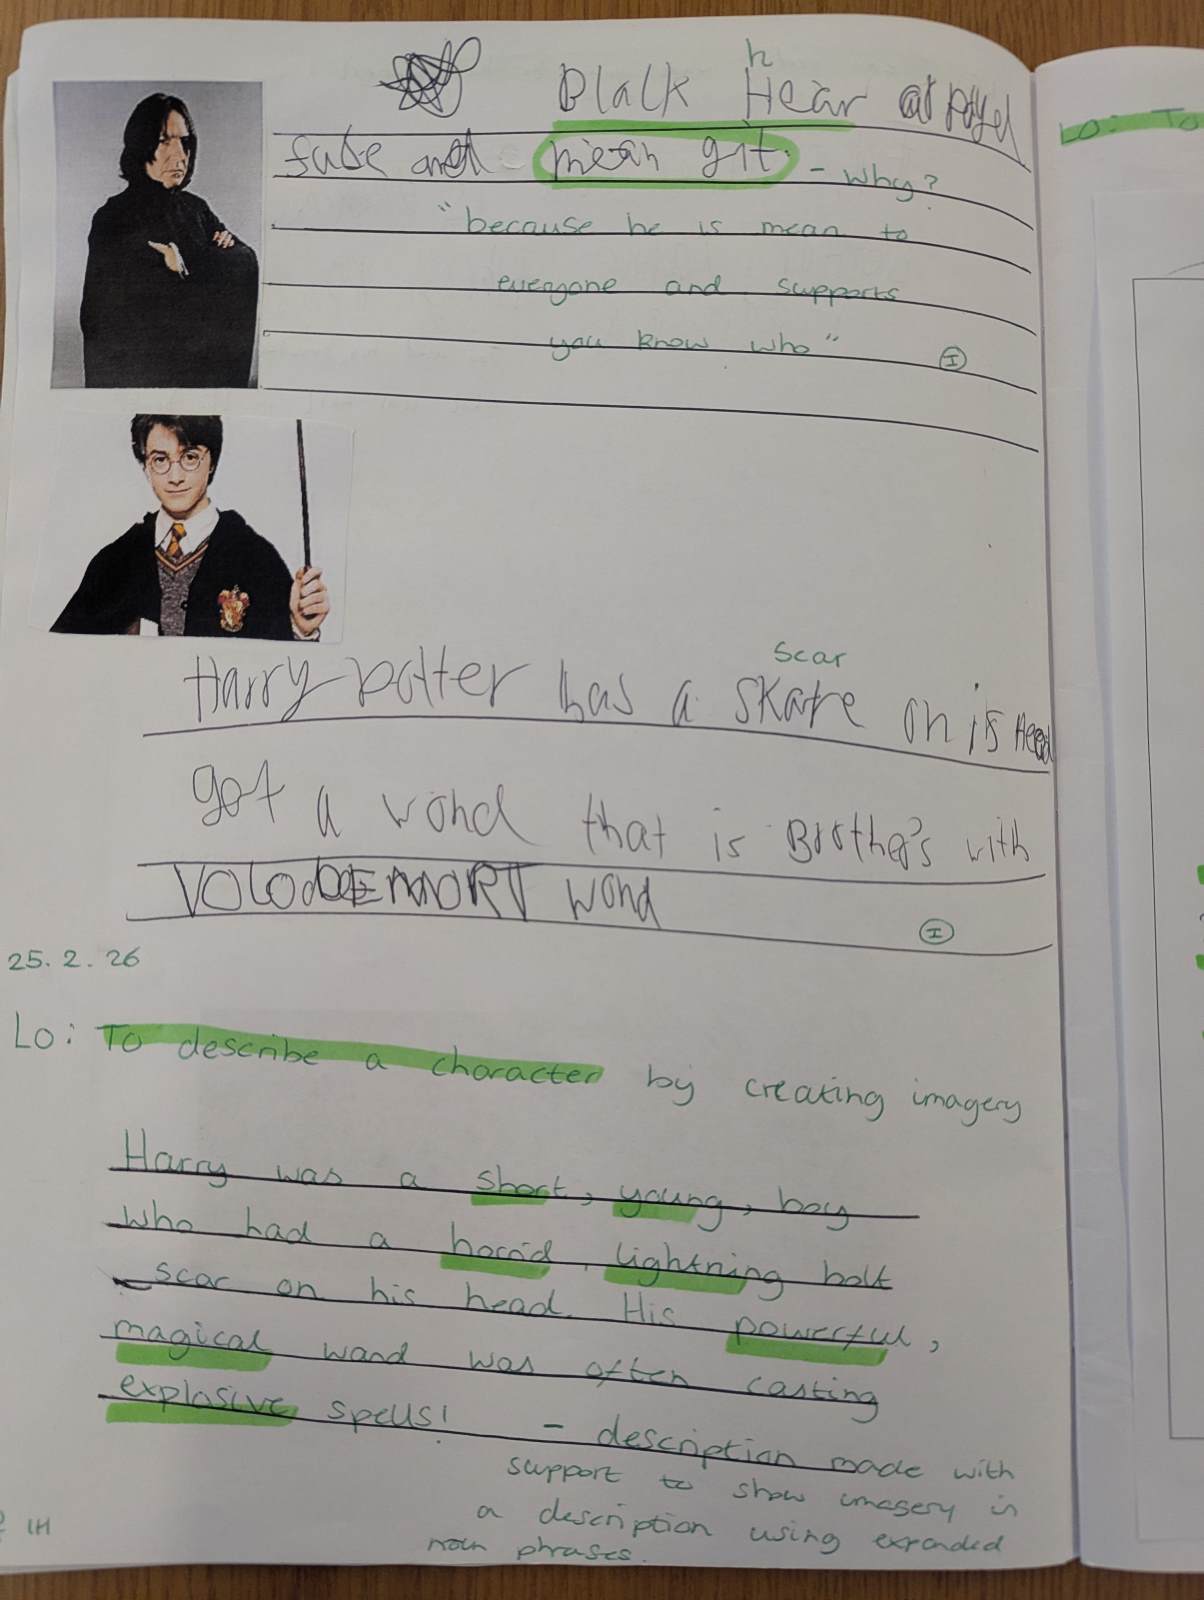 h
Blalk Hear
and mean git. - why?
"because he is mean to
everyone and supports
you know who" I
LO: To
scar
Harry potter has a skare on is Head
got a wond that is Brother's with
VOLODEMORT wond
I
25.2.26
LO: To describe a character by creating imagery
Harry was a short, young, boy
who had a horrid, lightning bolt
scar on his head. His powerful,
magical wand was often casting
explosive spells! - description made with
support to show imagery in
a description using expanded
noun phrases.
1H